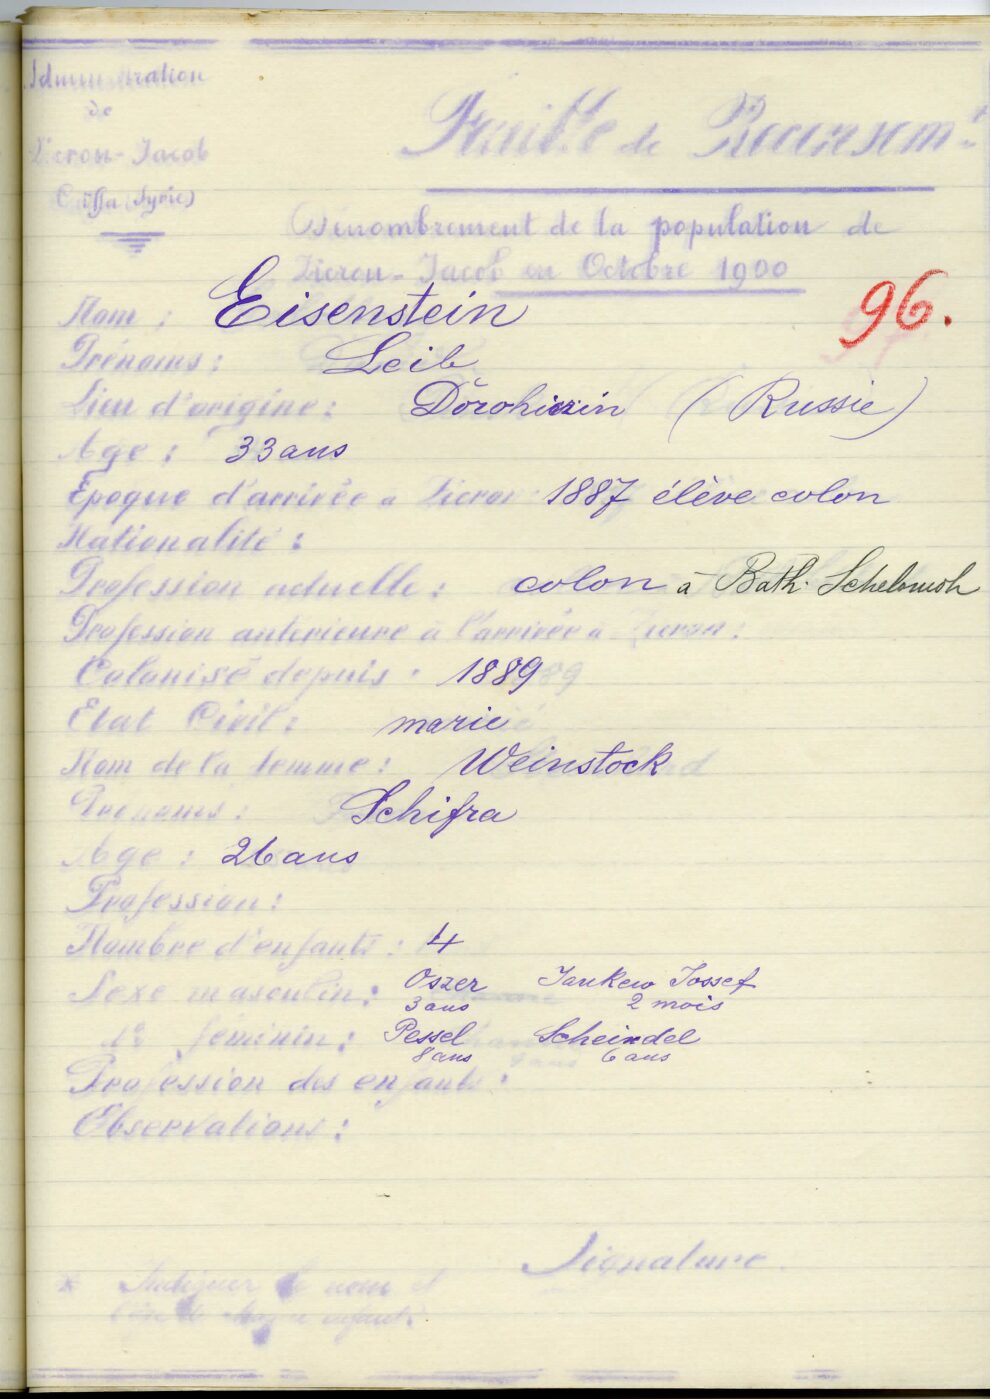 Administration
de
Zicron-Jacob
Caïffa (Syrie)
Feuille de Recensem.t
Dénombrement de la population de
Zicron-Jacob en Octobre 1900
96.
Nom : Eisenstein
Prénoms : Leib
Lieu d'origine : (Russie)
Age : 33 ans
Epoque d'arrivée à Zicron 1887 élève colon
Nationalité :
Profession actuelle : colon à Bath. Schelomoh
Profession anterieure à l'arrivée à Zicron :
Colonisé depuis : 1889
Etat Civil : marié
Nom de la femme : Weinstock
Prénoms : Schifra
Age : 26 ans
Profession :
Nombre d'enfants : 4
Sexe masculin : Oszer Jankew Jossef
3 ans 2 mois
d° féminin : Pessel Scheindel
8 ans 6 ans
Profession des enfants :
Observations :
Signature.
* Indiquer le nom et
l'âge de chaque enfant.